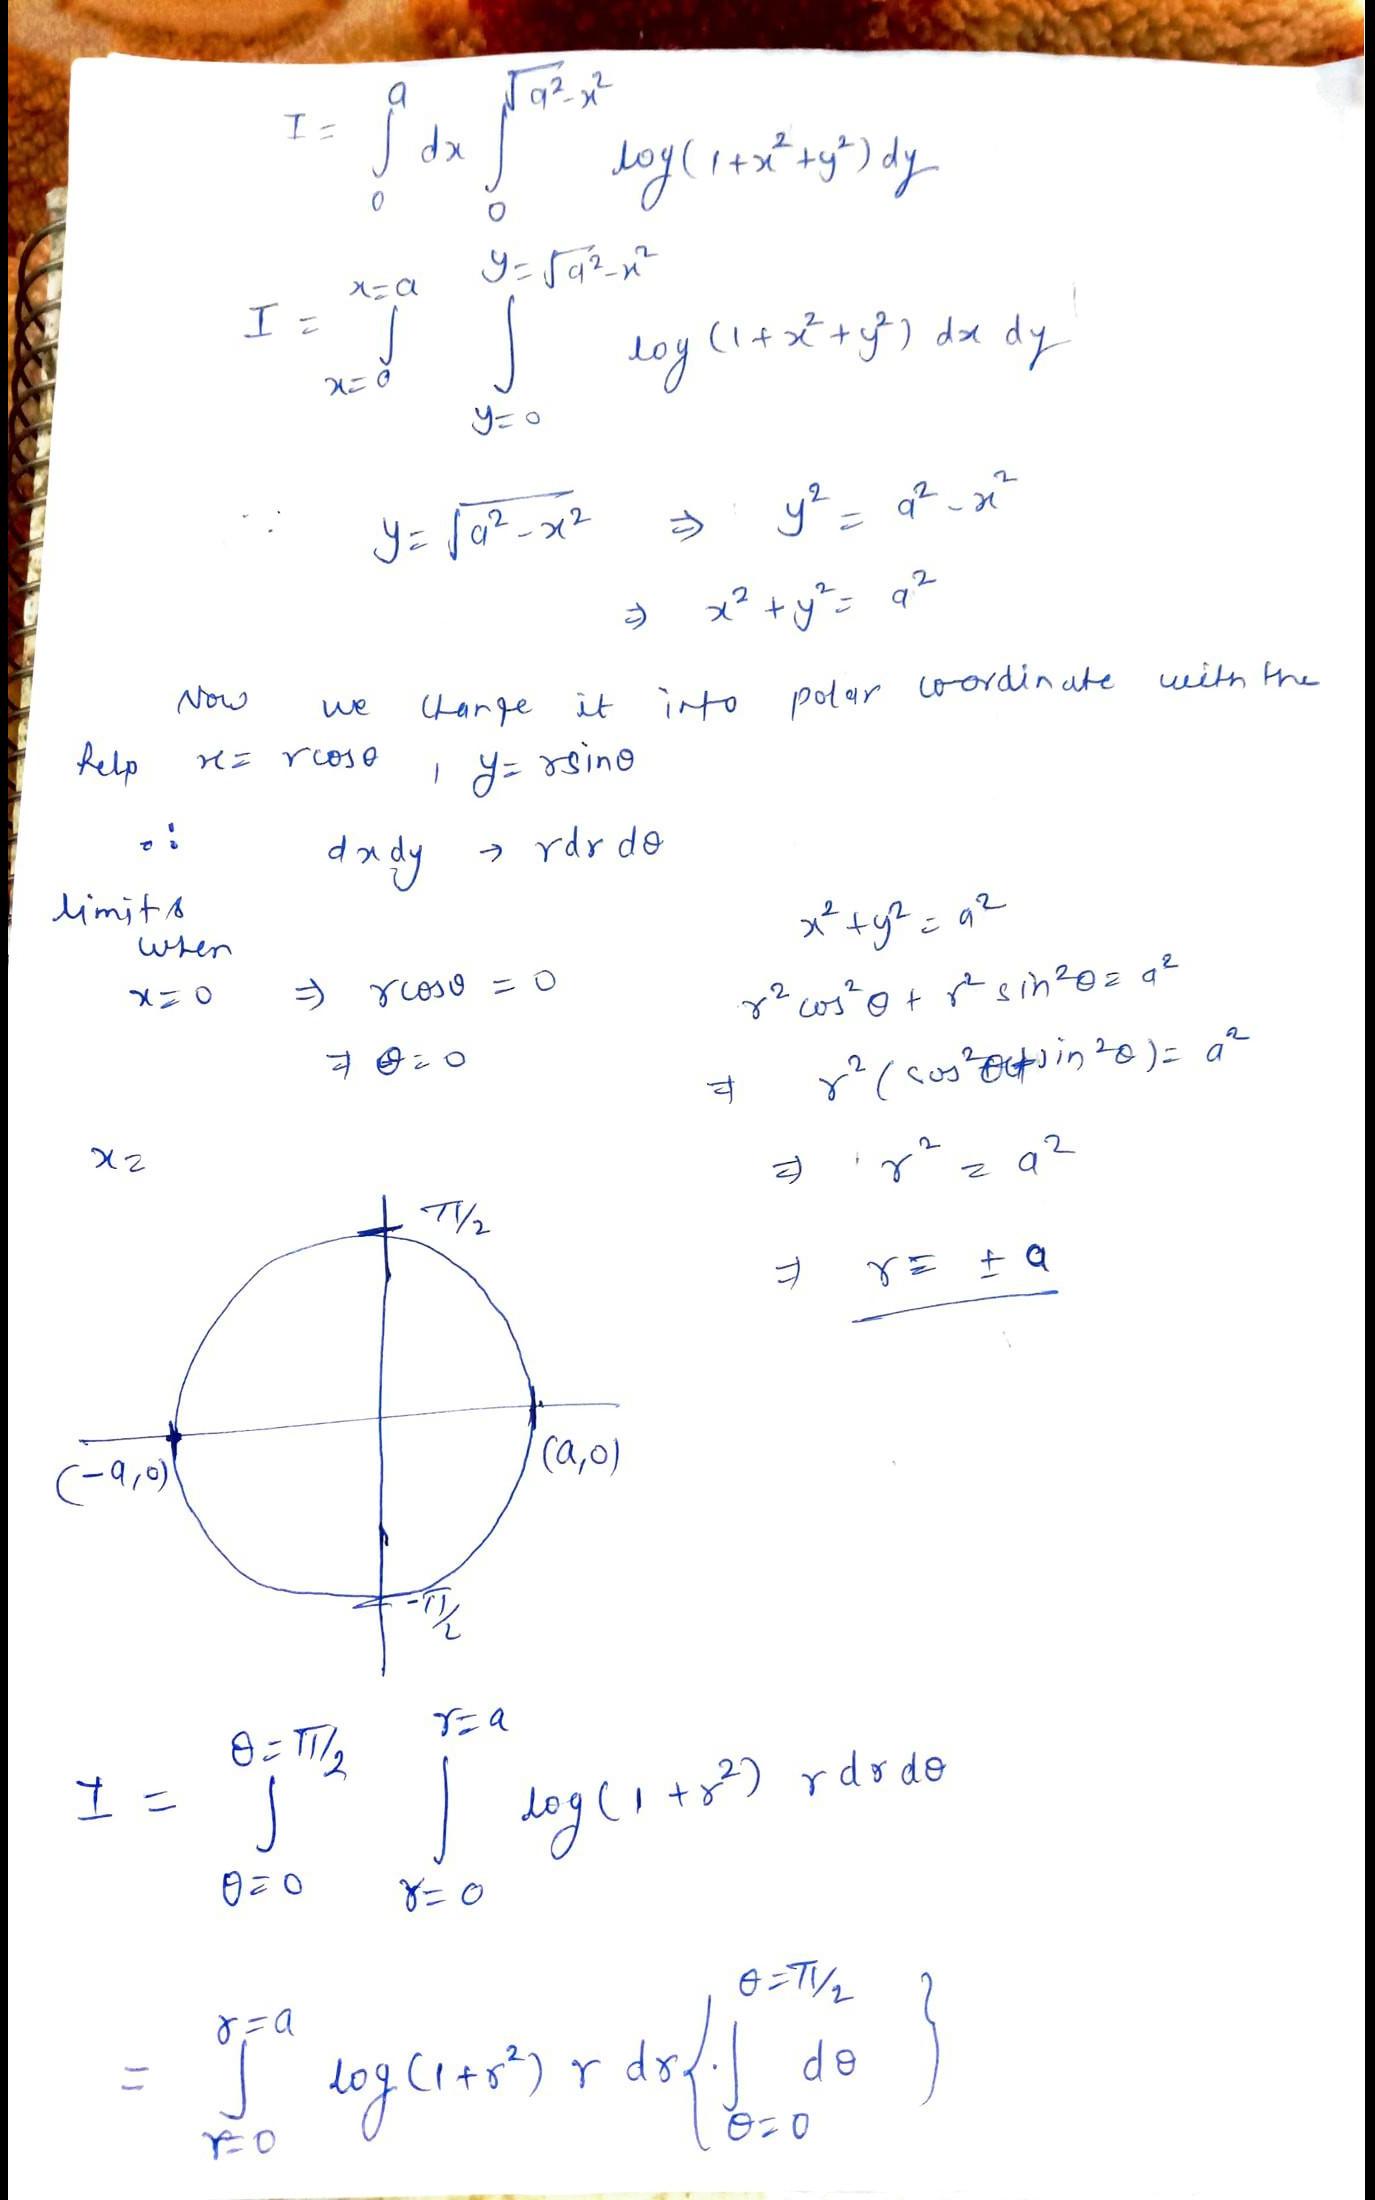 I = ∫₀ᵃ dx ∫₀^√a²-x² log(1+x²+y²) dy
I = ∫_{x=0}^{x=a} ∫_{y=0}^{y=√a²-x²} log (1+x²+y²) dx dy
∵ y=√a²-x² ⇒ y² = a²-x²
⇒ x²+y² = a²
Now we change it into polar coordinate with the
help x= rcosθ , y= rsinθ
∴ dxdy → rdr dθ
limits
when
x=0 ⇒ rcosθ = 0
⇒ θ=0
x=
x²+y² = a²
r² cos²θ + r² sin²θ = a²
⇒ r²(cos²θ+sin²θ) = a²
⇒ r² = a²
⇒ r = ± a
π/2
(-a,0)
(a,0)
-π/2
I = ∫_{θ=0}^{θ=π/2} ∫_{r=0}^{r=a} log(1+r²) r dr dθ
= ∫_{r=0}^{r=a} log(1+r²) r dr {.∫_{θ=0}^{θ=π/2} dθ }